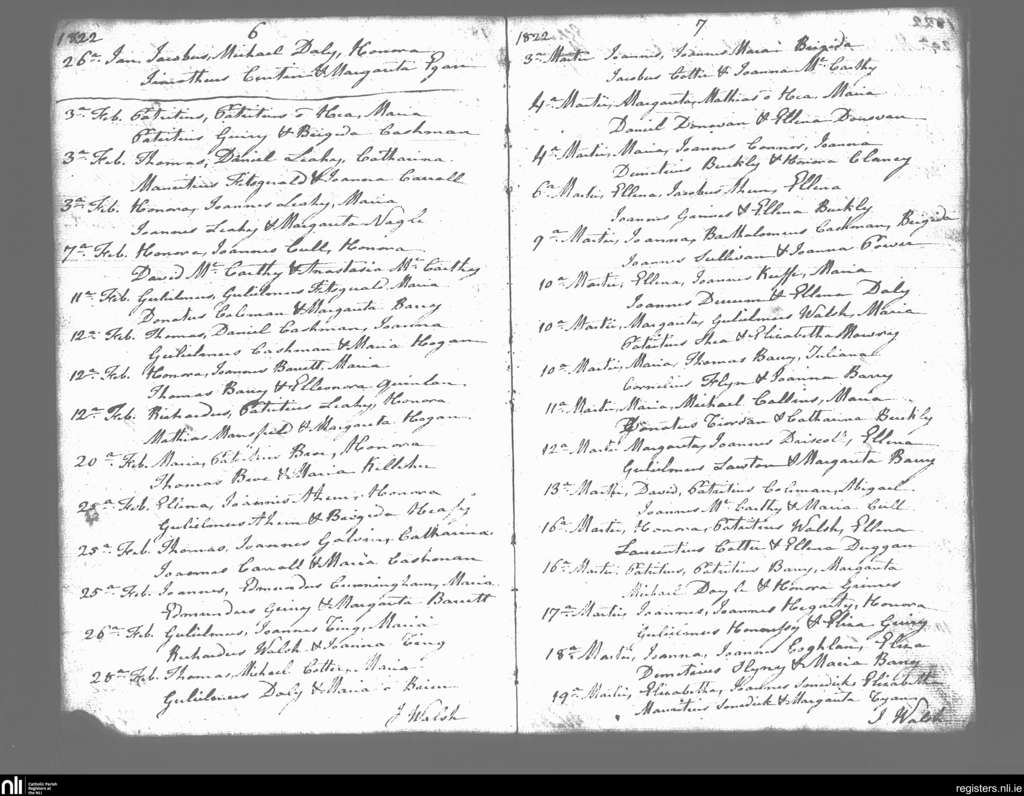 1822
6
26a Jan. Jacobus, Michael Daly, Honora
Timotheus & Margarita Egan
3a Feb. Patritius, Patritius o Hea, Maria
Patritius Geiry & Brigida Cashman
3a Feb. Thomas, Daniel Leahy, Catharina
Mauritius Fitzgerald & Joanna Carroll
3a Feb. Honora, Joannes Leahy, Maria
Joannes Leahy & Margarita Nagle
7a Feb. Honora, Joannes Cull, Honora
David Mc Carthy & Anastasia Mc Carthy
11a Feb. Gulielmus, Gulielmus Fitzgerald, Maria
Donatus Colman & Margarita Barry
12a Feb. Thomas, Daniel Cashman, Joanna
Gulielmus Cashman & Maria Hogan
12a Feb. Honora, Joannes Barrett, Maria
Thomas Barry & Elleonora Quinlan
12a Feb. Richardus, Patritius Leahy, Honora
Mathias Mansfield & Margarita Hogan
20a Feb. Maria, Patritius Bree, Honora
Thomas & Maria Killehu
25a Feb. Elina, Joannes Ahern, Honora
Gulielmus Ahern & Brigida Heafy
25a Feb. Thomas, Joannes Galvin, Catharina
Joannes Carroll & Maria Cashman
25a Feb. Joannes, Edmundus Cunningham, Maria
Edmundus Geiry & Margarita Barrett
26a Feb. Gulielmus, Joannes Ting, Maria
Richardus Walsh & Joanna Ting
28a Feb. Thomas, Michael Cotter, Maria
Gulielmus Daly & Maria o Brien
J Walsh
7
1822
3a Martii Joannes, Joannes Marai Brigida
Jacobus Cotter & Joanna Mc Carthy
4a Martii, Margarita, Mathias o Hea, Maria
Daniel Donovan & Ellena Donovan
4a Martii, Maria, Joannes Connor, Joanna
Demetrius Buckly & Honora Clancy
6a Martii, Ellena, Jacobus Ahern, Ellena
Joannes Gaines & Ellena Buckly
9a Martii, Joanna, Bartholomeus Cashman, Brigida
Joannes Sullivan & Joanna Power
10a Martii, Ellena, Joannes Keeffe, Maria
Joannes & Ellena Daly
10a Martii, Margarita, Gulielmus Walsh, Maria
Patritius Shea & Elizabetha
10a Martii, Maria, Thomas Barry, Juliana
Cornelius Flyn & Joanna Barry
11a Martii, Maria, Michael Collins, Maria
Donatus Riordan & Catharina Buckly
12a Martii Margarita, Joannes Driscol, Ellena
Gulielmus Lawton & Margarita Barry
13a Martii, David, Patritius Coleman, Abigael
Joannes Mc Carthy & Maria Cull
16a Martii, Honora, Patritius Walsh, Ellena
Laurentius Cotter & Ellena Duggan
16a Martii, Patritius, Patritius Barry, Margarita
Michael Doyle & Honora Gaines
17a Martii, Joannes, Joannes Hegarty, Honora
Gulielmus Hennessy & Eliza Geiry
18a Martii, Joanna, Joannes Coghlan, Eliza
Demetrius Flyn & Maria Barry
19a Martii, Elizabetha, Joannes Smidick Elizabeth
Mauritius Smidick & Margarita
J Walsh
nli
Catholic Parish
Registers at
the NLI
registers.nli.ie